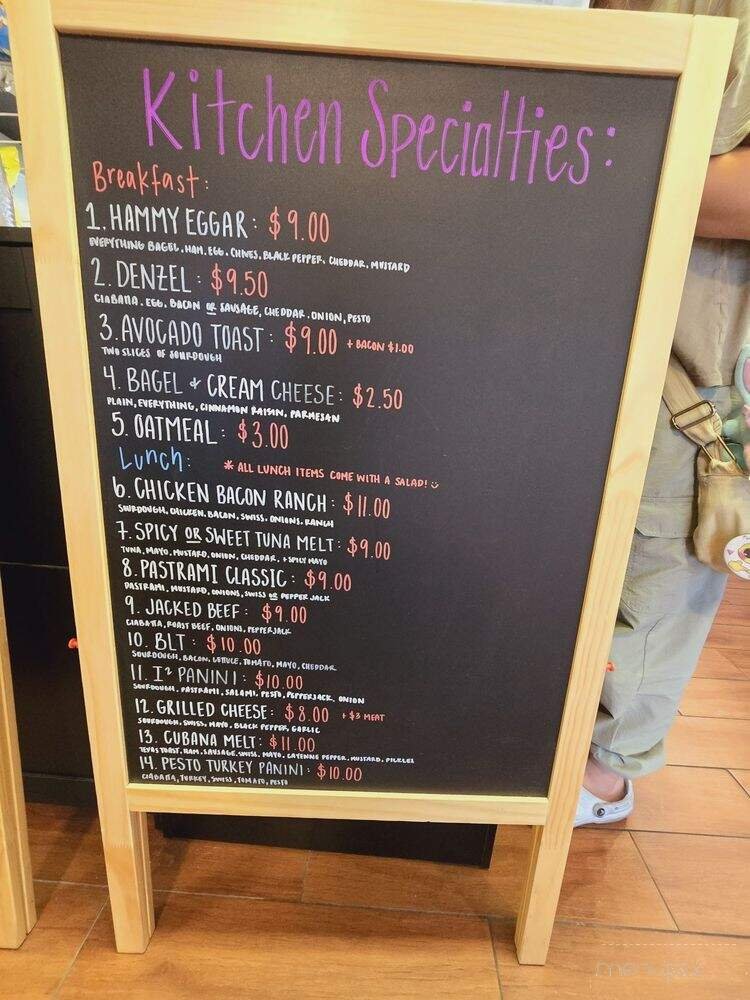 Kitchen Specialties:
Breakfast:
1. HAMMY EGGAR: $9.00
EVERYTHING BAGEL, HAM, EGG, CHIVES, BLACK PEPPER, CHEDDAR, MUSTARD
2. DENZEL: $9.50
CIABATTA, EGG, BACON OR SAUSAGE, CHEDDAR, ONION, PESTO
3. AVOCADO TOAST: $9.00 + BACON $1.00
TWO SLICES OF SOURDOUGH
4. BAGEL & CREAM CHEESE: $2.50
PLAIN, EVERYTHING, CINNAMON RAISIN, PARMESAN
5. OATMEAL: $3.00
Lunch: * ALL LUNCH ITEMS COME WITH A SALAD! ☺
6. CHICKEN BACON RANCH: $11.00
SOURDOUGH, CHICKEN, BACON, SWISS, ONIONS, RANCH
7. SPICY OR SWEET TUNA MELT: $9.00
TUNA, MAYO, MUSTARD, ONION, CHEDDAR, + SPICY MAYO
8. PASTRAMI CLASSIC: $9.00
PASTRAMI, MUSTARD, ONIONS, SWISS OR PEPPER JACK
9. JACKED BEEF: $9.00
CIABATTA, ROAST BEEF, ONIONS, PEPPERJACK
10. BLT: $10.00
SOURDOUGH, BACON, LETTUCE, TOMATO, MAYO, CHEDDAR
11. I² PANINI: $10.00
SOURDOUGH, PASTRAMI, SALAMI, PESTO, PEPPERJACK, ONION
12. GRILLED CHEESE: $8.00 + $3 MEAT
SOURDOUGH, SWISS, MAYO, BLACK PEPPER, GARLIC
13. CUBANA MELT: $11.00
TEXAS TOAST, HAM, SAUSAGE, SWISS, MAYO, CAYENNE PEPPER, MUSTARD, PICKLES
14. PESTO TURKEY PANINI: $10.00
CIABATTA, TURKEY, SWISS, TOMATO, PESTO